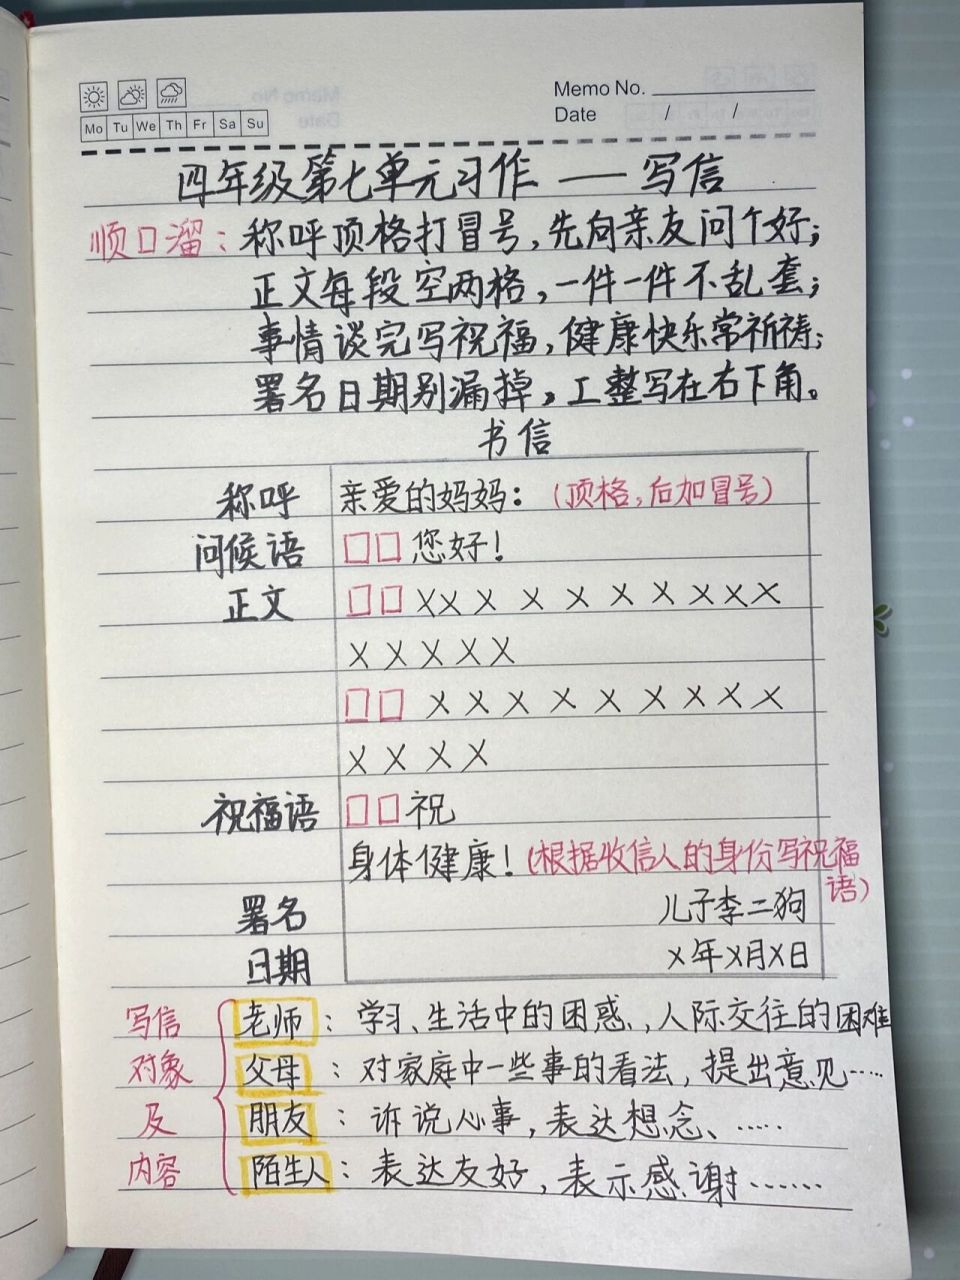 Memo No.
Mo Tu We Th Fr Sa Su
Date / /
四年级第七单元习作——写信
顺口溜：称呼顶格打冒号，先向亲友问个好；
正文每段空两格，一件一件不乱套；
事情谈完写祝福，健康快乐常祈祷；
署名日期别漏掉，工整写在右下角。
书信
称呼 亲爱的妈妈：（顶格，后加冒号）
问候语 □□您好！
正文 □□XXXXXXXXXX
XXXXX
□□XXXXXXXXX
XXXX
祝福语 □□祝
身体健康！（根据收信人的身份写祝福
语）
署名 儿子李二狗
日期 X年X月X日
写信 老师：学习、生活中的困惑，人际交往的困难
对象 父母：对家庭中一些事的看法，提出意见……
及 朋友：诉说心事，表达想念、……
内容 陌生人：表达友好，表示感谢……